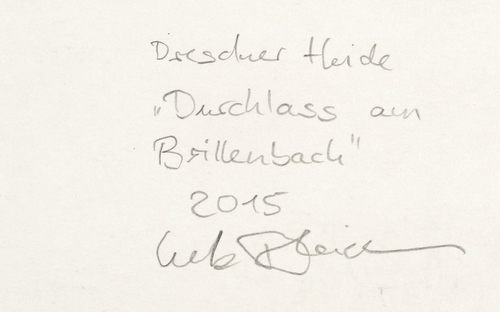 Dresdner Heide
„Durchlass am
Brillenbach"
2015